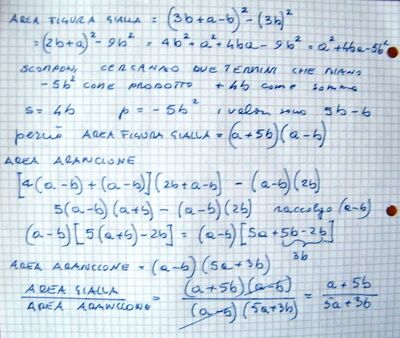 AREA FIGURA GIALLA = (3b+a-b)² - (3b)²
= (2b+a)² - 9b² = 4b² + a² + 4ba - 9b² = a² + 4ba - 5b²
SCOMPONI, CERCANDO DUE TERMINI CHE DIANO
-5b² COME PRODOTTO +4b come somma
s = 4b p = -5b² i valori sono 5b -b
perciò AREA FIGURA GIALLA = (a+5b)(a-b)
AREA ARANCIONE
[4(a-b)+(a-b)](2b+a-b) - (a-b)(2b)
5(a-b)(a+b) - (a-b)(2b) raccolgo (a-b)
(a-b)[5(a+b)-2b] = (a-b)[5a+5b-2b]
3b
AREA ARANCIONE = (a-b)(5a+3b)
AREA GIALLA / AREA ARANCIONE = (a+5b)(a-b) / (a-b)(5a+3b) = a+5b / 5a+3b